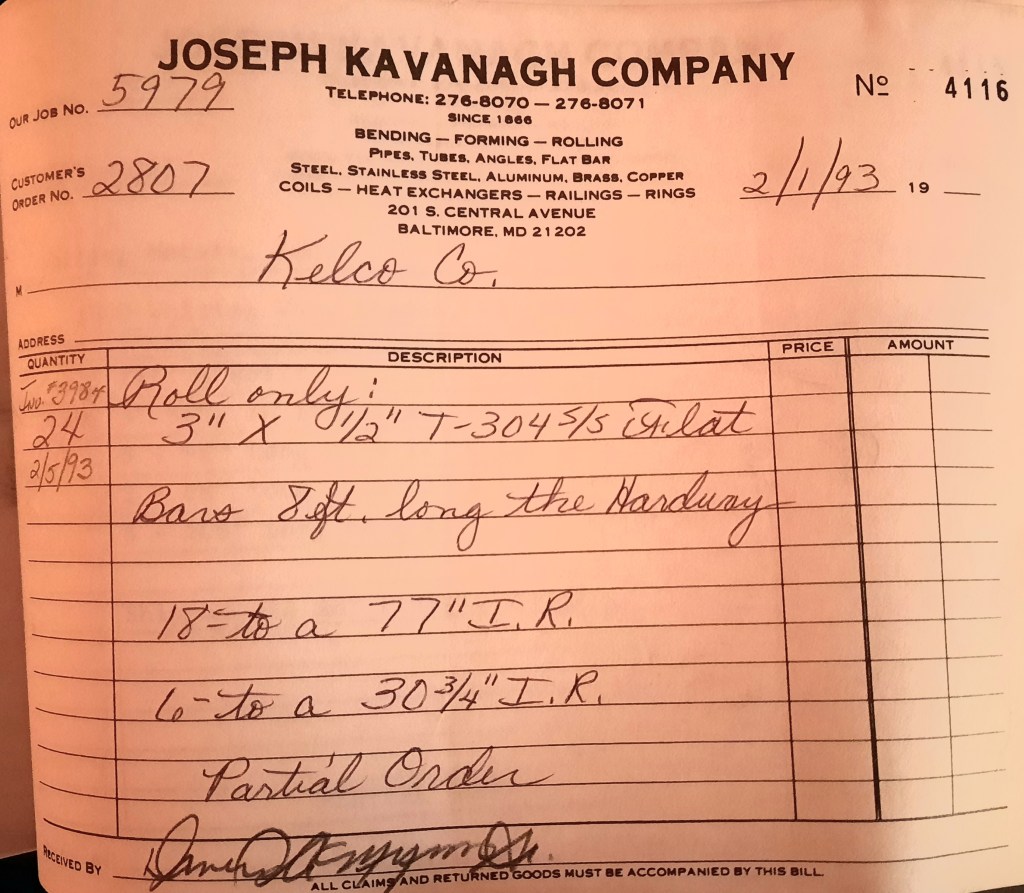 JOSEPH KAVANAGH COMPANY
Nº 4116
OUR JOB NO. 5979
TELEPHONE: 276-8070 — 276-8071
SINCE 1866
BENDING — FORMING — ROLLING
PIPES, TUBES, ANGLES, FLAT BAR
CUSTOMER'S ORDER NO. 2807
STEEL, STAINLESS STEEL, ALUMINUM, BRASS, COPPER
COILS — HEAT EXCHANGERS — RAILINGS — RINGS
2/1/93 19
201 S. CENTRAL AVENUE
BALTIMORE, MD 21202
M Kelco Co.
ADDRESS
QUANTITY DESCRIPTION PRICE AMOUNT
Inv. #3984 Roll only:
24 3" X 1/2" T-304 S/S Flat
2/5/93
Bars 8 ft. long the Hardway
18-to a 77" I.R.
6-to a 30 3/4" I.R.
Partial Order
RECEIVED BY
ALL CLAIMS AND RETURNED GOODS MUST BE ACCOMPANIED BY THIS BILL.